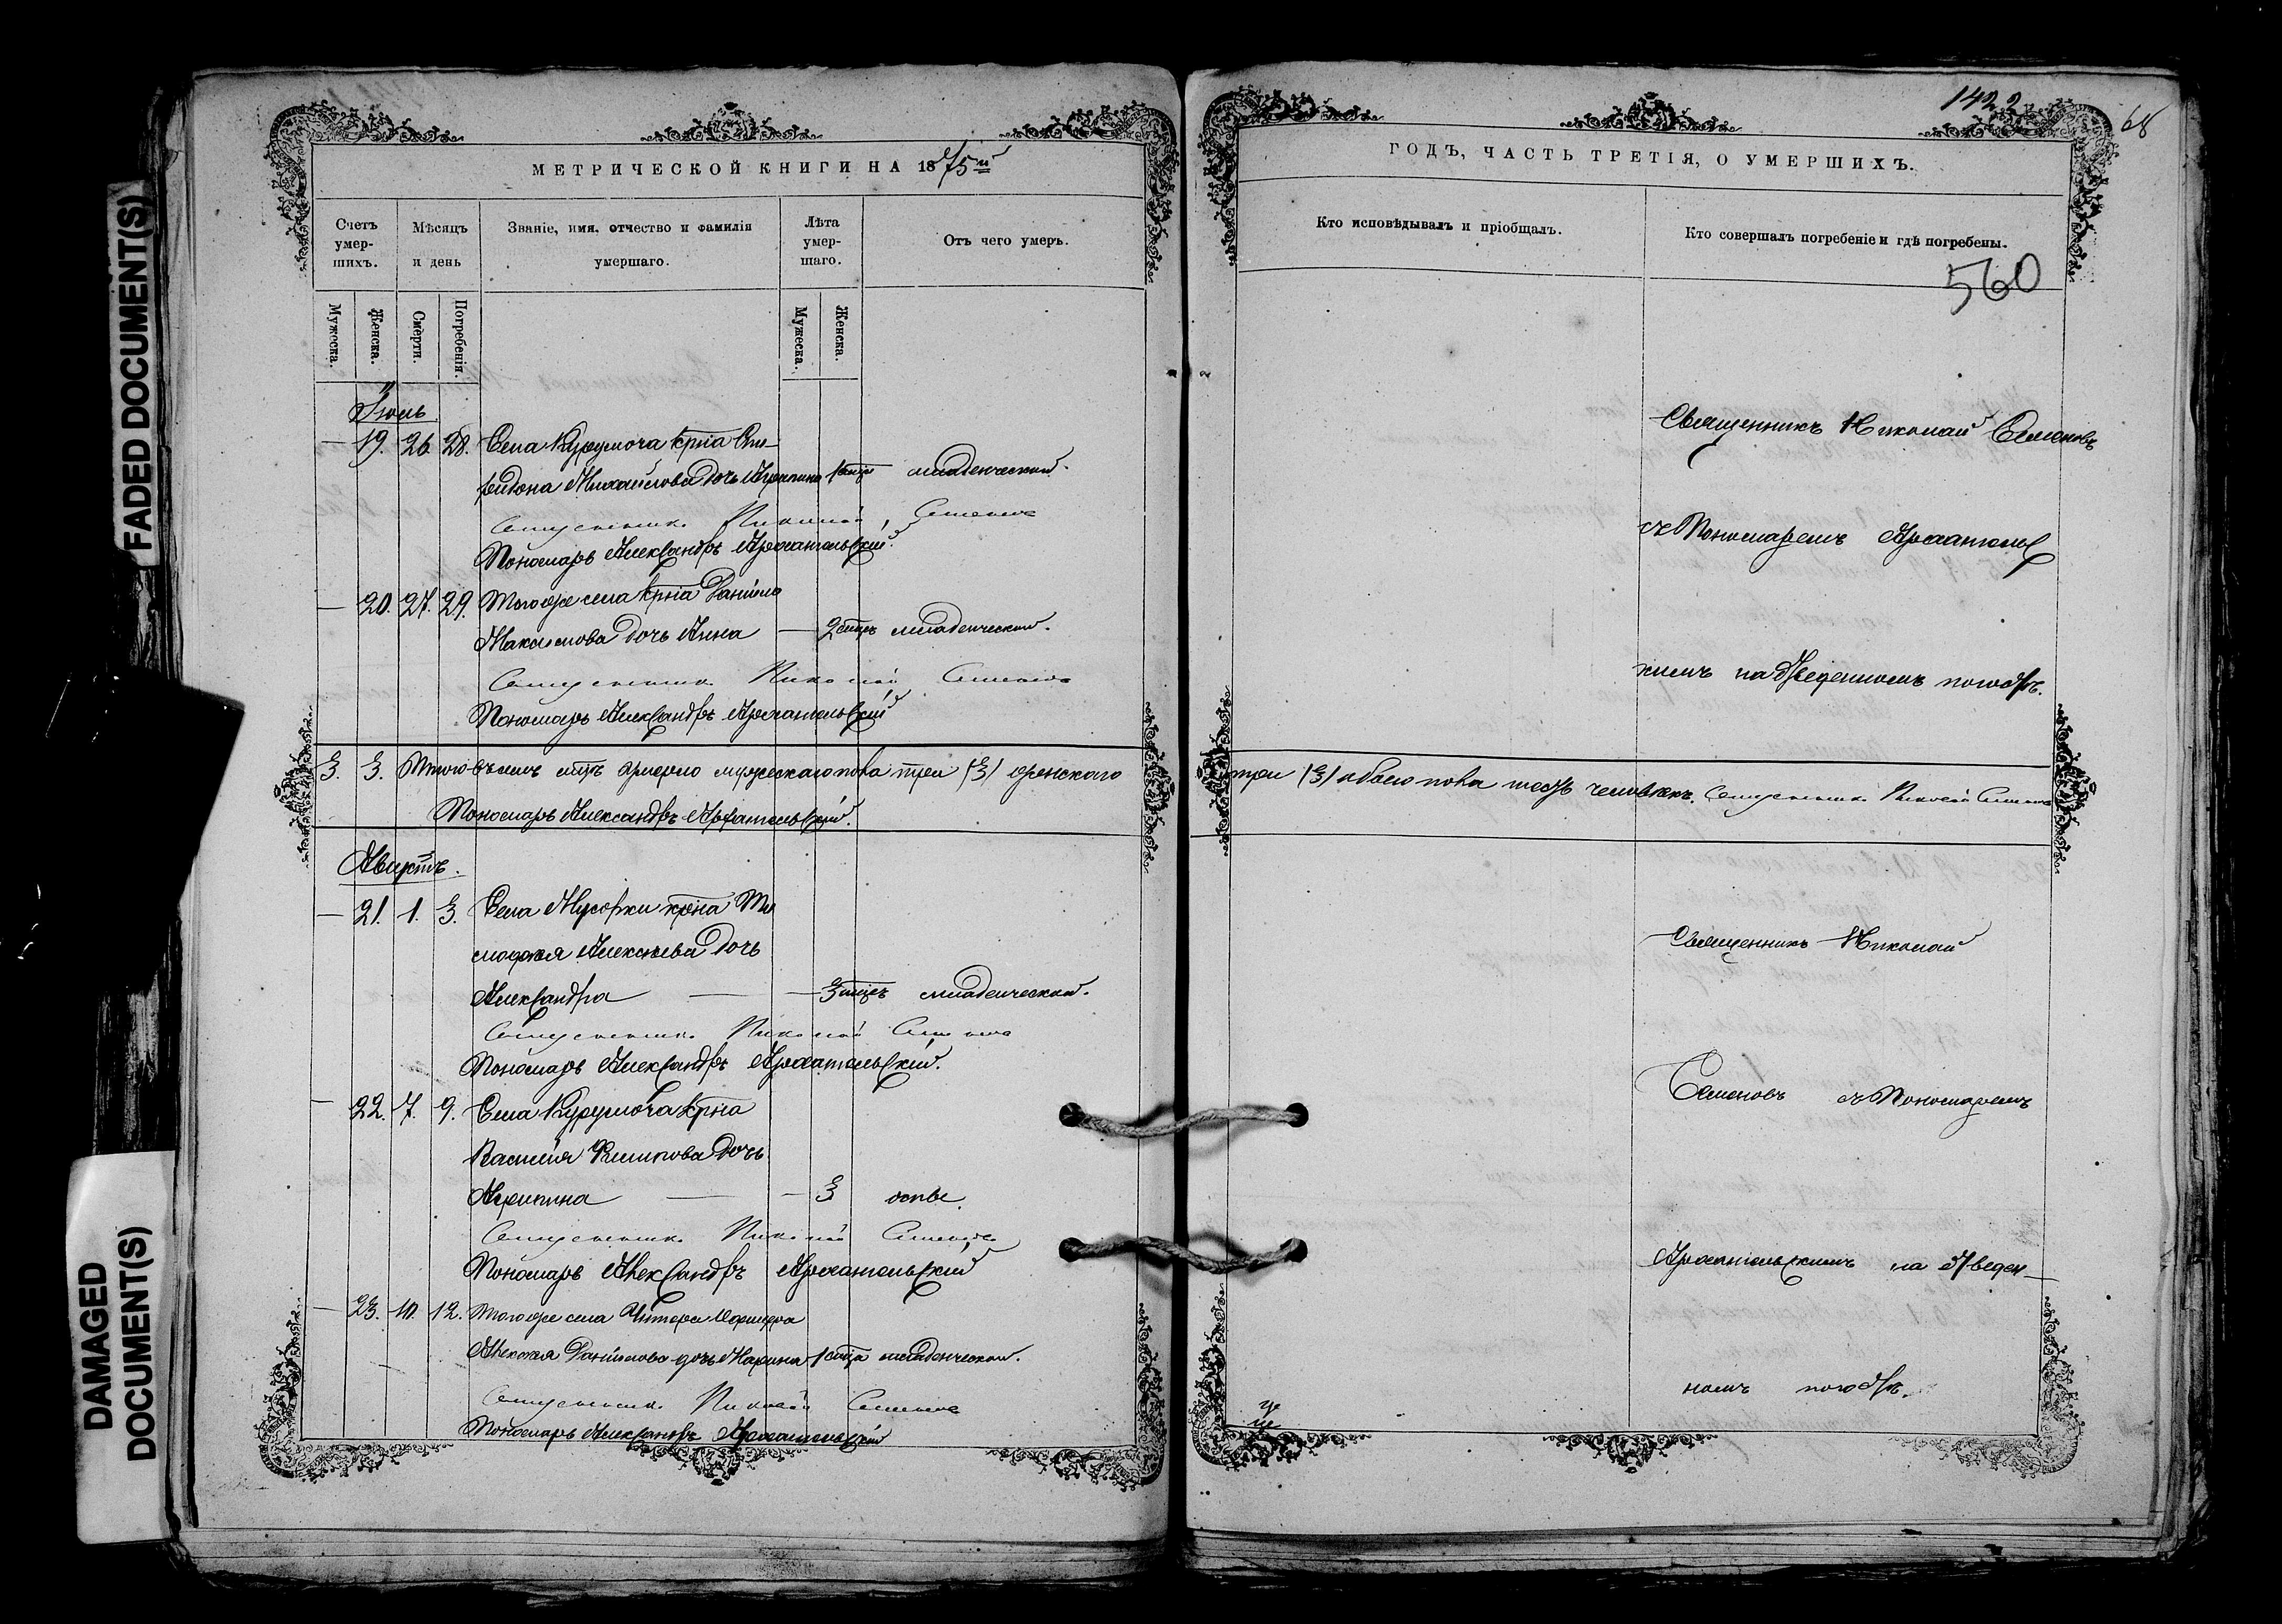 FADED DOCUMENT(S)
DAMAGED
DOCUMENT(S)
МЕТРИЧЕСКОЙ КНИГИ НА 1875й
Счетъ умер-шихъ.
Мѣсяцъ и день
Званіе, имя, отчество и фамилія умершаго.
Лѣта умер-шаго.
Отъ чего умеръ.
Мужеска.
Женска.
Смерти.
Погребенія.
Мужеска.
Женска.
Іюль
— 19. 26. 28. Села Курумоча крна Спи-
ридона Михайлова дочь Агрипина 1 младенческой.
Священникъ Николай Семеновъ
Пономарь Александръ Архангельскій.
— 20. 27. 29. Тогоже села крна Данила
Максимова дочь Анна — 2 младенческой.
Священникъ Николай Семеновъ
Пономарь Александръ Архангельскій
3. 3. Итого въ семъ мцѣ умерло мужескаго пола три (3) женскаго
Пономарь Александръ Архангельскій.
Августъ.
— 21. 1. 3. Села Мусорки крна Ти
мофея Алексѣева дочь
Александра — — 3 младенческой.
Священникъ Николай Семеновъ
Пономарь Александръ Архангельскій.
— 22. 7. 9. Села Курумоча крна
Василія Филипова дочь
Агрипина — — 3 оспы.
Священникъ Николай Семеновъ
Пономарь Александръ Архангельскій
— 23. 10. 12. Тогоже села
Алексѣя Данилова дочь Марина 1 младенческой.
Священникъ Николай Семеновъ
Пономарь Александръ Архангельскій
1422
68
ГОДЪ, ЧАСТЬ ТРЕТІЯ, О УМЕРШИХЪ.
Кто исповѣдывалъ и пріобщалъ.
Кто совершалъ погребеніе и гдѣ погребены.
560
Священникъ Николай Семеновъ
съ Пономаремъ Архангельс
кимъ на отведенномъ погостѣ.
три (3) обоего пола шесть человѣкъ. Священникъ Николай Семеновъ
Священникъ Николай
Семеновъ съ Пономаремъ
Архангельскимъ на отведен—
номъ погостѣ.